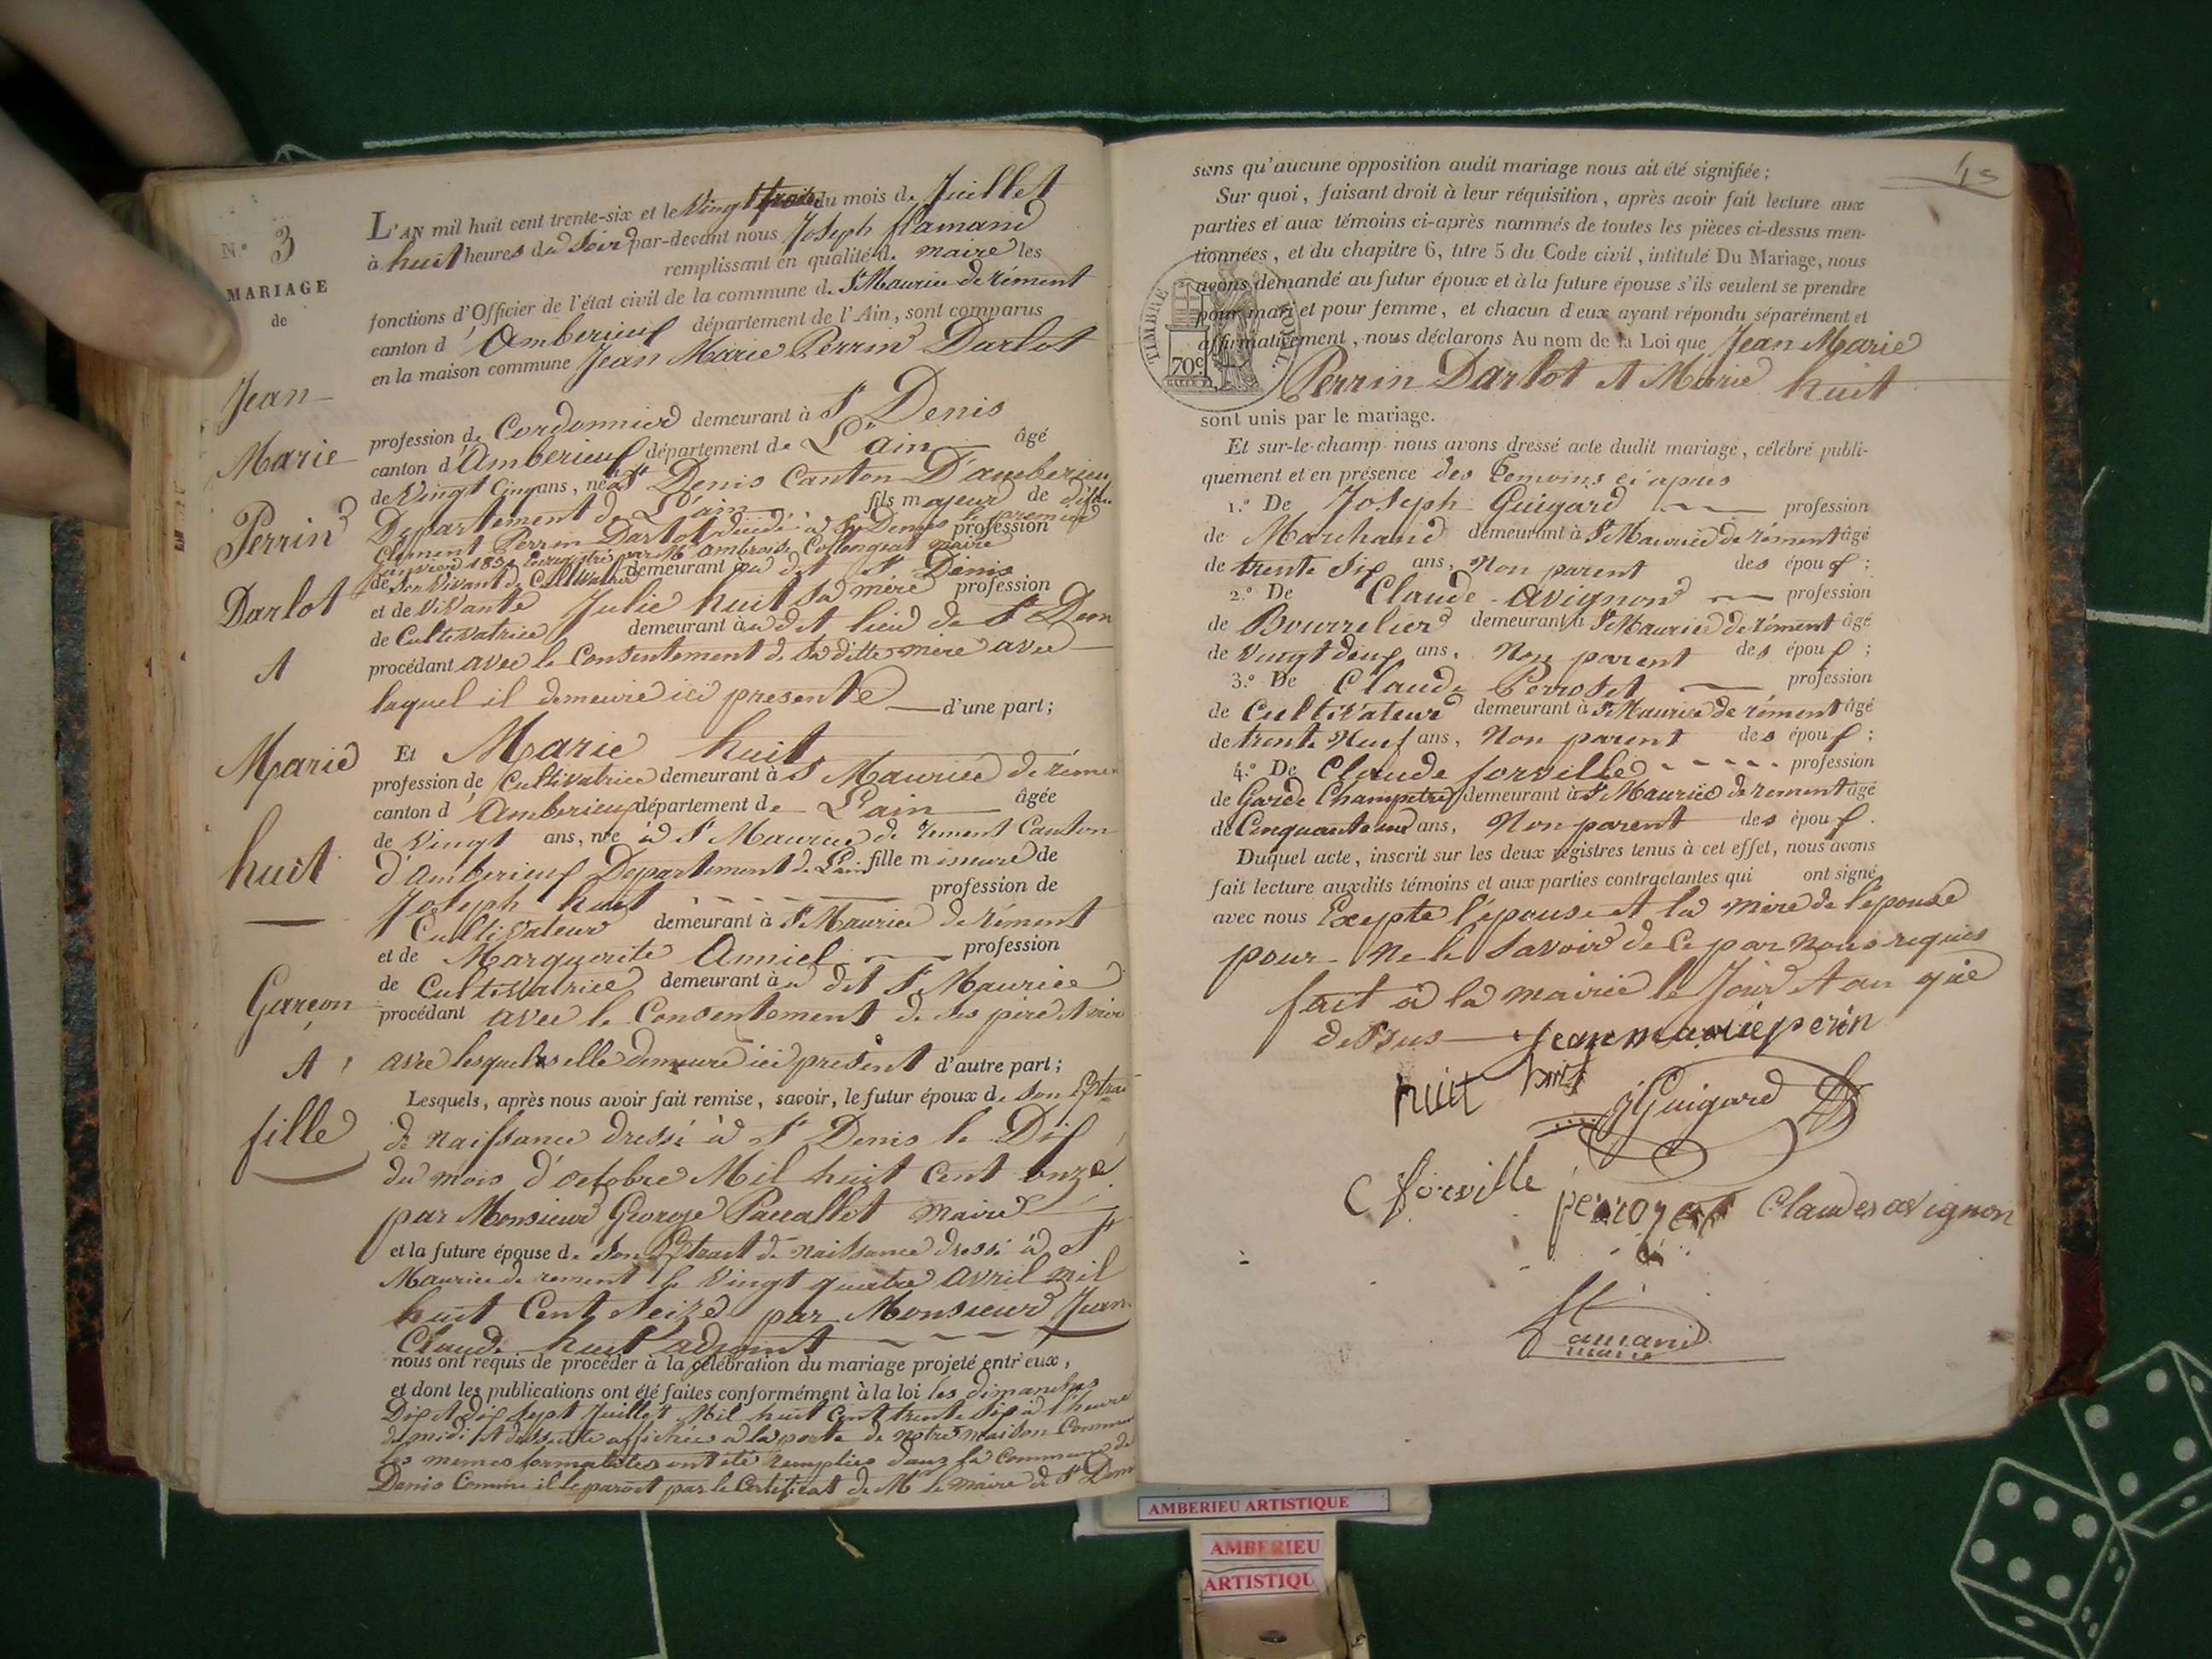 N.° 3
MARIAGE
de
Jean
Marie
Perrin
Darlot
et
Marie
huit
Garçon
et
fille
L'AN mil huit cent trente-six et le Vingt trois du mois de Juillet
à huit heures du Soir par-devant nous Joseph flamand
remplissant en qualité de maire les
fonctions d'Officier de l'état civil de la commune de St Maurice de rément
canton d'Amberieux département de l'Ain, sont comparus
en la maison commune Jean Marie Perrin Darlot
profession de Cordonnier demeurant à St Denis
canton d'Amberieux département de L'ain âgé
de Vingt Cinq ans, né à St Denis Canton D'amberieu
Departement de L'ain fils majeur de
Clément Perrin Darlot décédé à St Denis le premier profession
janvier 1834 par Mr ambroise maire
de Son Vivant de Cultivateur demeurant au dit St Denis
et de Vivante Julie huit Sa mère profession
de Cultivatrice demeurant à u dit lieu de St Deni
procédant avec le Consentement de Sa ditte mere avec
laquel il demeure ici presente d'une part;
Et Marie huit
profession de Cultivatrice demeurant à St Maurice de réme
canton d'Amberieux département de L'ain âgée
de Vingt ans, née à St Maurice de rement Canton
d'amberieux Departement de L'ain fille mineure de
Joseph huit profession de
Cultivateur demeurant à St Maurice de rément
et de Marguerite Anniel profession
de Cultivatrice demeurant à u dit St Maurice
procédant avec le Consentement de ses père et mère
avec lesquels elle demeure ici présent d'autre part;
Lesquels, après nous avoir fait remise, savoir, le futur époux de Son Extrai
de naissance dressé à St Denis le Dix
du mois d'octobre Mil huit Cent onze
par Monsieur George Pacallet maire
et la future épouse de Son Extrait de naissance dressé à St
Maurice de rement le Vingt quatre avril mil
huit Cent Seize par Monsieur Jean
Claude huit adjoint
nous ont requis de procéder à la célébration du mariage projeté entr'eux,
et dont les publications ont été faites conformément à la loi les dimanches
Dix et dix sept Juillet Mil huit Cent trente Six à l'heure
de midi et dessuite affichées à la porte de notre maison Commun
les mêmes formalités ont été remplies dans la Commune de
Denis Comme il le paroit par le Certificat de Mr le maire de St Deni
45
sans qu'aucune opposition audit mariage nous ait été signifiée;
Sur quoi, faisant droit à leur réquisition, après avoir fait lecture aux
parties et aux témoins ci-après nommés de toutes les pièces ci-dessus men-
tionnées, et du chapitre 6, titre 5 du Code civil, intitulé Du Mariage, nous
avons demandé au futur époux et à la future épouse s'ils veulent se prendre
pour mari et pour femme, et chacun d'eux ayant répondu séparément et
affirmativement, nous déclarons Au nom de la Loi que Jean Marie
Perrin Darlot et Marie huit
TIMBRE ROYAL
70c
sont unis par le mariage.
Et sur-le-champ nous avons dressé acte dudit mariage, célébré publi-
quement et en présence des temoins ci apres
1.° De Joseph Guigard profession
de Marchand demeurant à St Maurice de rément âgé
de trente Six ans, Non parent des époux;
2.° De Claude Avignon profession
de Bourrelier demeurant à St Maurice de rément âgé
de vingt deux ans, Non parent des époux;
3.° De Claude Perroset profession
de Cultivateur demeurant à St Maurice de rément âgé
de trente Neuf ans, Non parent des époux;
4.° De Claude forville profession
de Garde Champetre demeurant à St Maurice de rement âgé
de Cinquante ans, Non parent des époux.
Duquel acte, inscrit sur les deux registres tenus à cet effet, nous avons
fait lecture auxdits témoins et aux parties contractantes qui ont signé
avec nous Exepté l'épouse et la mère de l'épouse
pour ne le Savoir de Ce par nous requis
fait à la mairie le Jour et an que
dessus jean marie perin
huit huit
J Guigard
C forville perrozet Claude avignon
flamand
maire
AMBERIEU ARTISTIQUE
AMBERIEU
ARTISTIQU